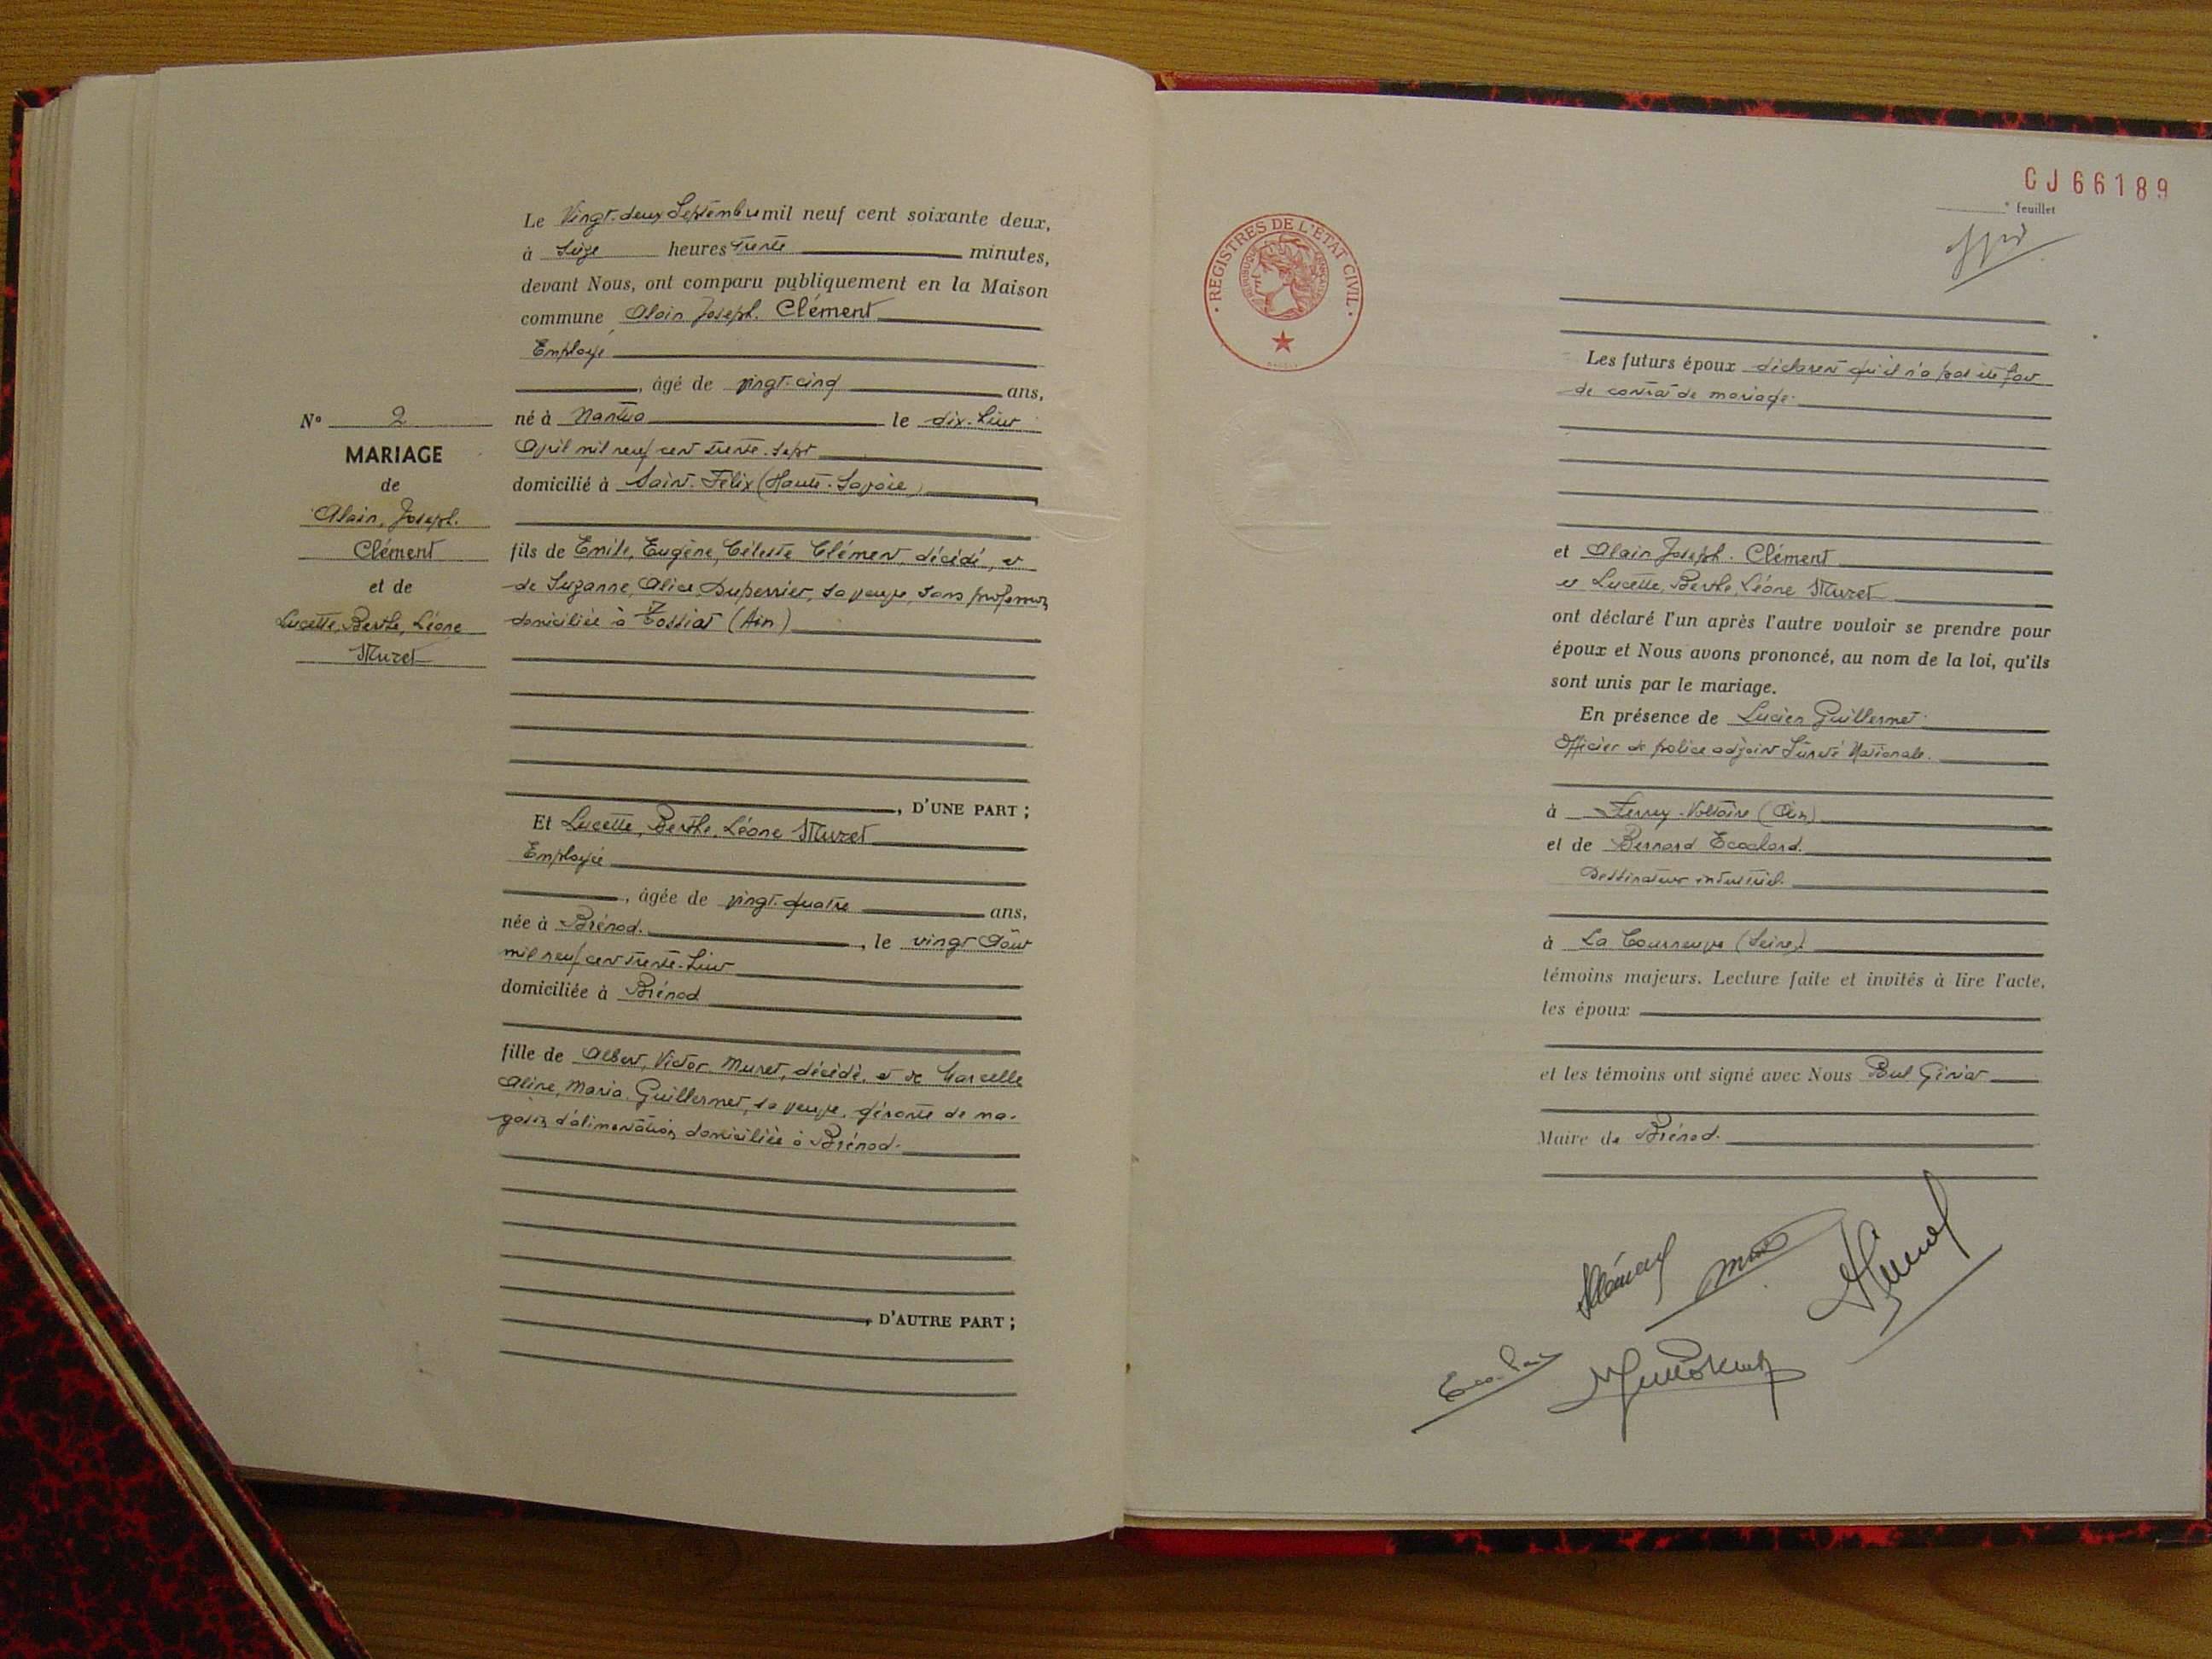 Le Vingt-deux Septembre mil neuf cent soixante deux,
à Seize heures Trente minutes,
devant Nous, ont comparu publiquement en la Maison
commune Alain Joseph. Clément
Employé
, âgé de vingt-cinq ans,
né à Nantua le dix-huit
Avril mil neuf cent trente-sept
domicilié à Saint-Félix (Haute-Savoie)
fils de Emile, Eugène, Céleste Clément, décédé, et
de Suzanne, Alice Duperrier, sa veuve, sans profession
domiciliée à Tossiat (Ain)
, D'UNE PART ;
Et Lucette, Berthe, Léone Muret
Employée
, âgée de vingt-quatre ans,
née à Brénod. , le vingt Août
mil neuf cent trente-huit
domiciliée à Brénod
fille de Albert, Victor Muret, décédé, et de Marcelle
Aline, Maria Guillermet, sa veuve, gérante de ma-
gasin d'alimentation domiciliée à Brénod.
, D'AUTRE PART ;
N° 2
MARIAGE
de
Alain, Joseph.
Clément
et de
Lucette, Berthe, Léone
Muret
CJ66189
° feuillet
REGISTRES DE L'ETAT CIVIL
Les futurs époux déclarent qu'il n'a pas été fait
de contrat de mariage.
et Alain Joseph. Clément
et Lucette, Berthe, Léone Muret
ont déclaré l'un après l'autre vouloir se prendre pour
époux et Nous avons prononcé, au nom de la loi, qu'ils
sont unis par le mariage.
En présence de Lucien Guillermet
Officier de police adjoint Sûreté Nationale.
à Ferney-Voltaire (Ain)
et de Bernard Ecochard.
Dessinateur industriel.
à La Courneuve (Seine)
témoins majeurs. Lecture faite et invités à lire l'acte,
les époux
et les témoins ont signé avec Nous Paul
Maire de Brénod.